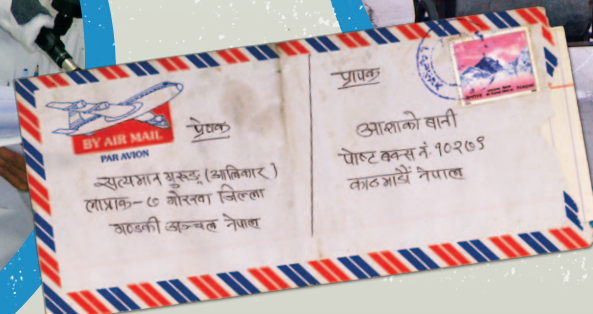 BY AIR MAIL
PAR AVION
प्रेषक
सत्यमान गुरुङ (आलिकार)
लाप्राक-७ गोरखा जिल्ला
गण्डकी अञ्चल नेपाल
प्रापक
आशाको बानी
पोष्ट बक्स नं. १०२७९
काठमाडौं नेपाल